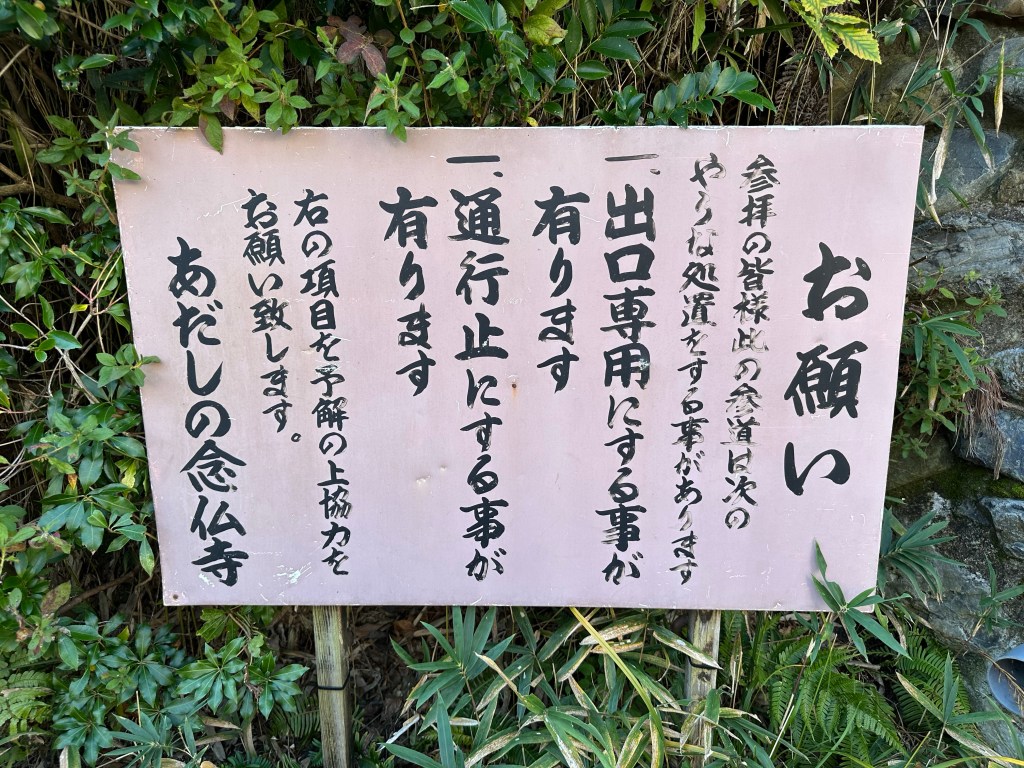 お願い
参拝の皆様此の参道は次の
やうな処遺をする事があります
一、出口専用にする事が
有ります
一、通行止にする事が
有ります
右の項目を予解の上協力を
お願い致します。
あだしの念仏寺